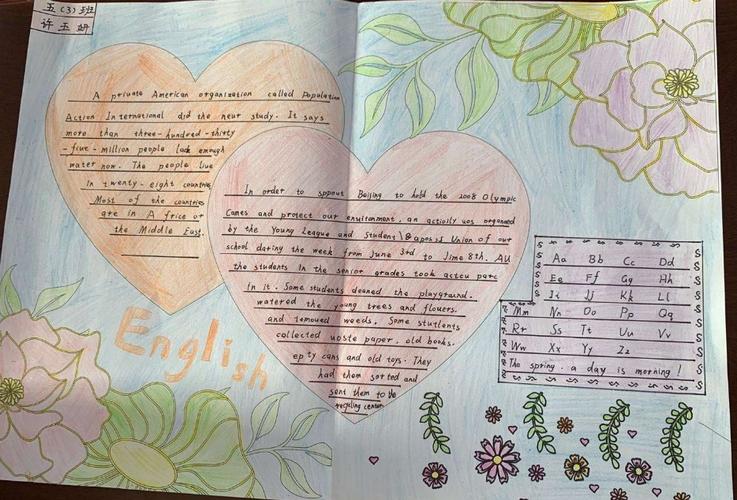 五(3)班
许玉妍
A private American organization called Population
Action International did the neur study. It says
more than three-hundred-thirty
-five-million people lack enough
water now. The people live
in twenty-eight countries
Most of the countries
are in A frica or
the Middle East.
In order to spport Beijing to hold the 2008 Olympic
Games and protect our environment, an activity uos organed
by the Young League and Student\&aposs Union of our
school dating the week from June 3rd to Jime 8th. All
the students in the senior grades took acteu parc
in it. Some students deaned the playground.
watered the young trees and flowers.
and temoued weeds. Some students
collected waste paper, old books.
ep ty cans and old toys. They
had them sorted and
sent them to the
recycling center
English
Aa Bb Cc Dd
Ee Ff Gg Hh
Ii Jj Kk Ll
Mm Nn Oo Pp Qq
Rr Ss Tt Uu Vv
Ww Xx Yy Zz
The spring. a day is morning!